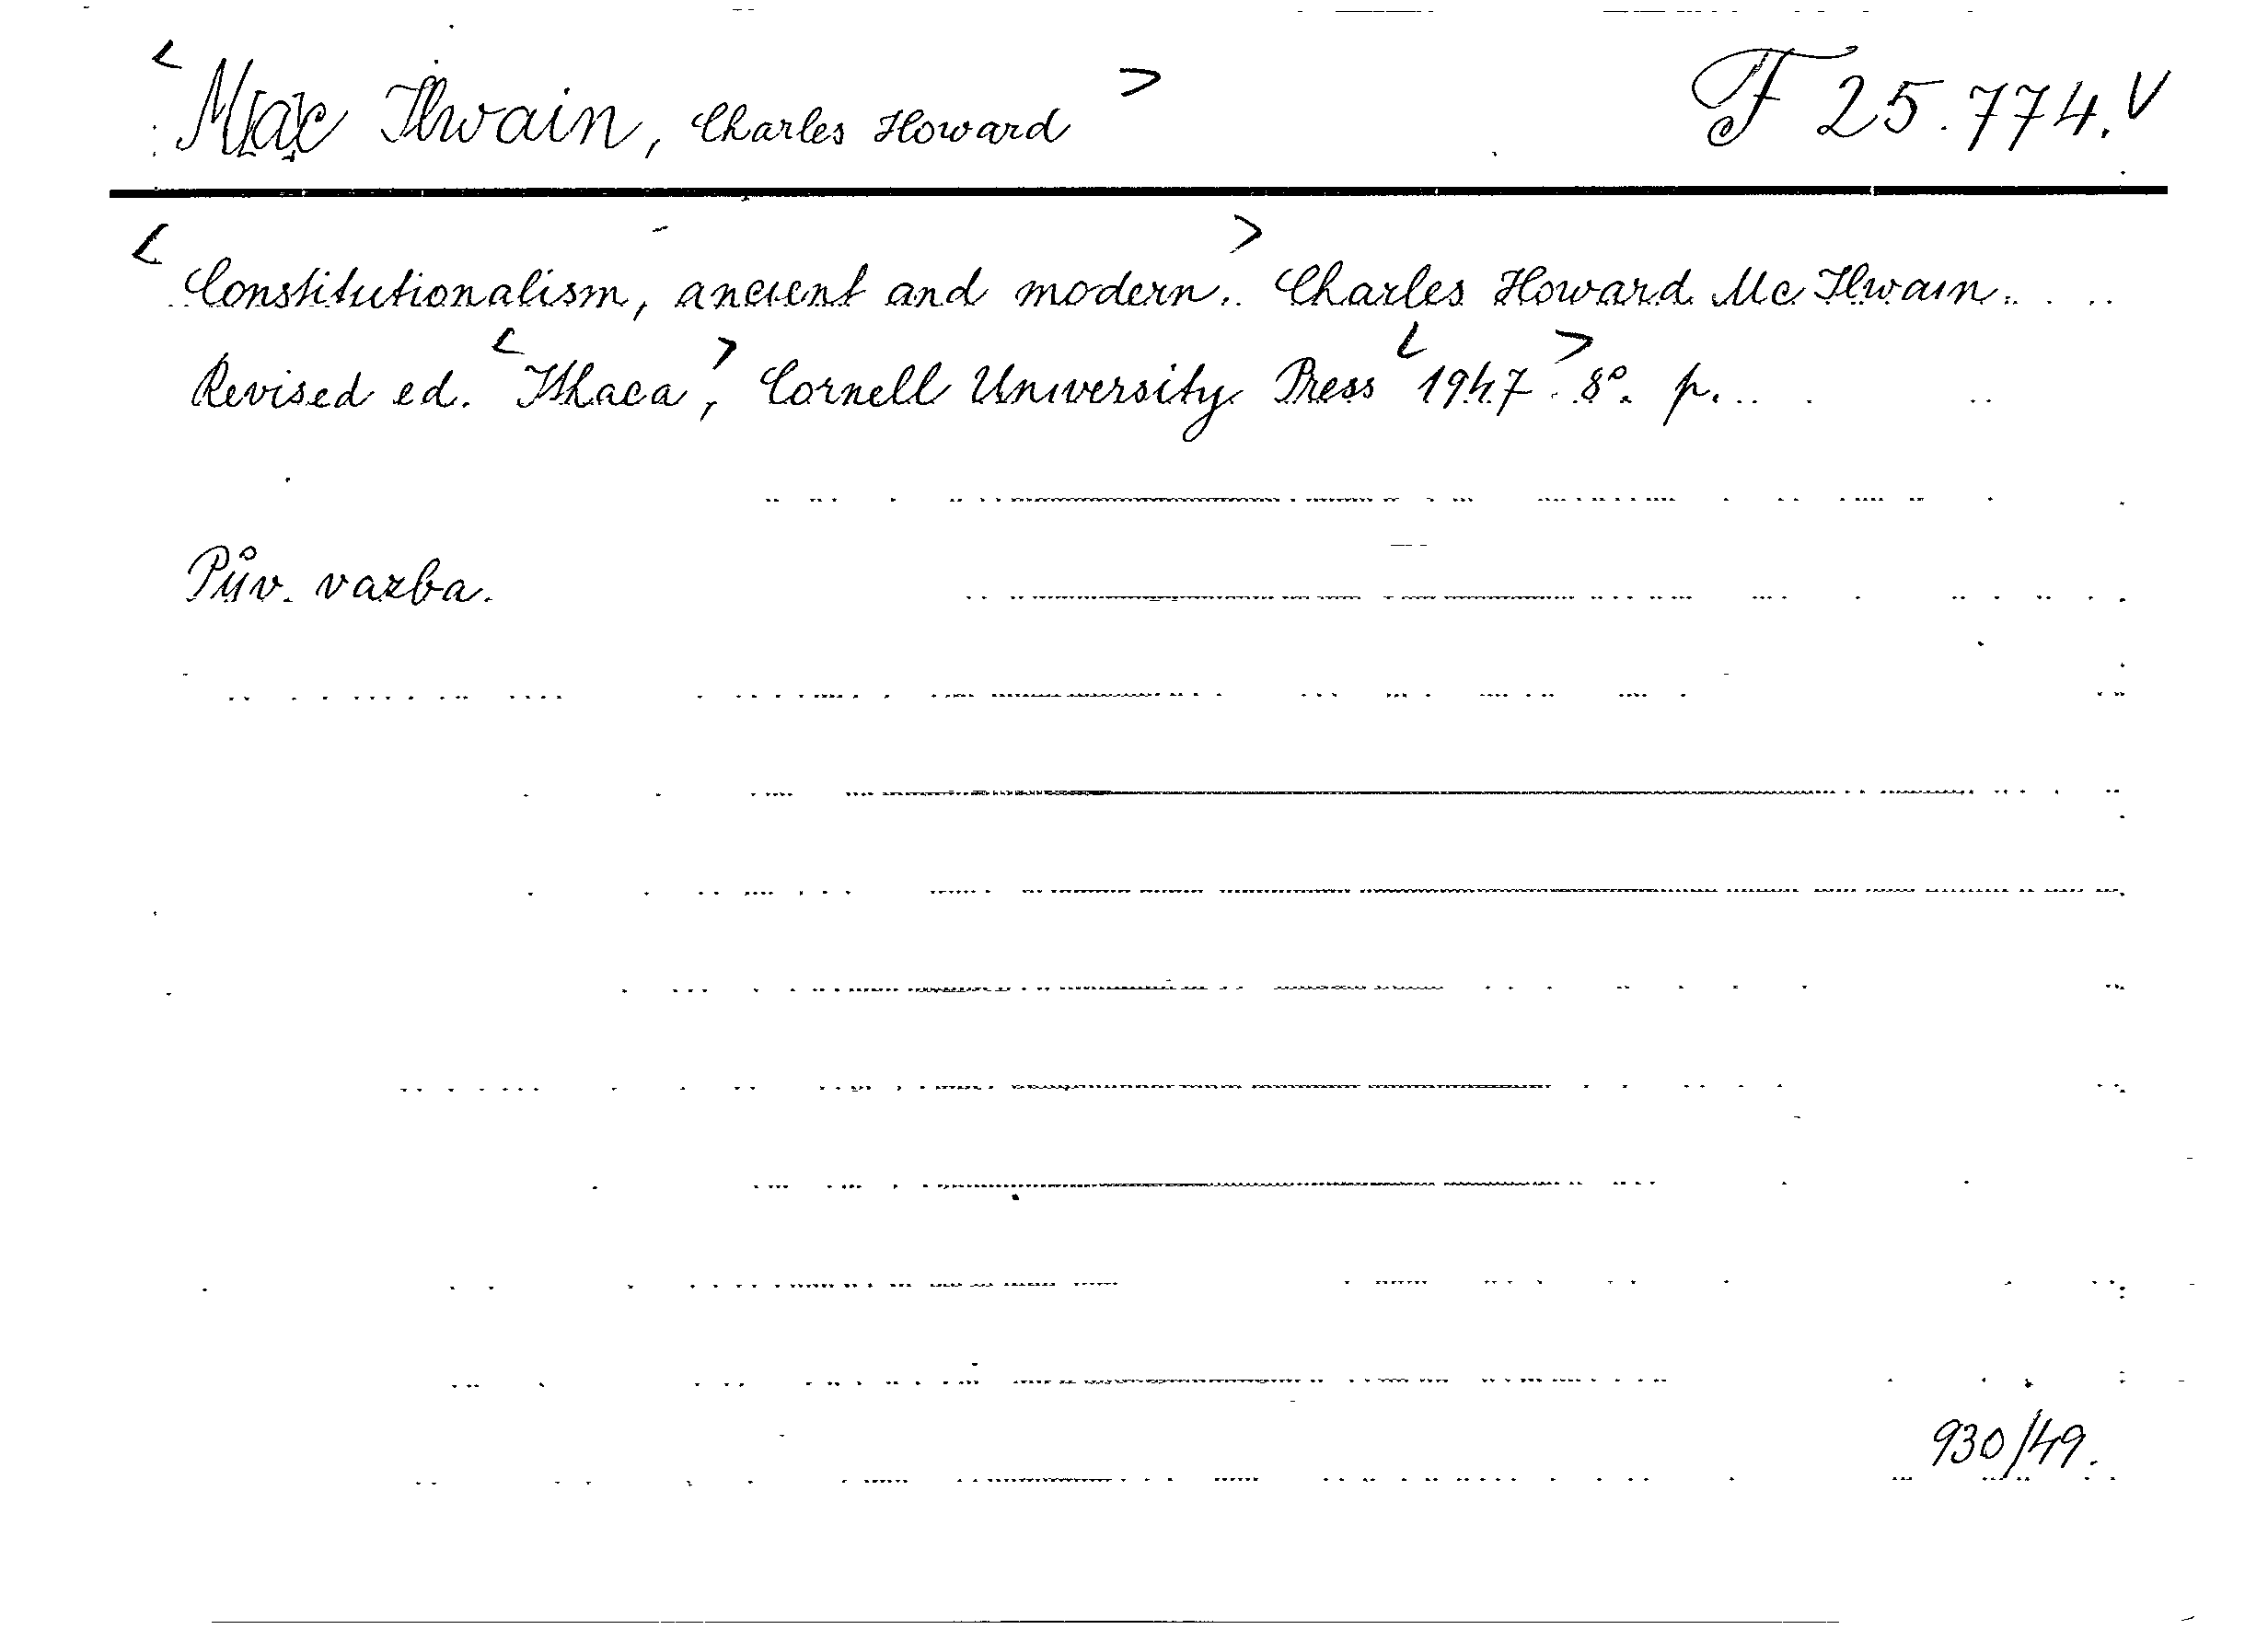 < M[a]c Ilwain, Charles Howard > F 25.774. V
< Constitutionalism, ancient and modern. > Charles Howard Mc Ilwain.
Revised ed. < Ithaca, > Cornell University Press < 1947. > 8°. p.
Pův. vazba.
930/49.